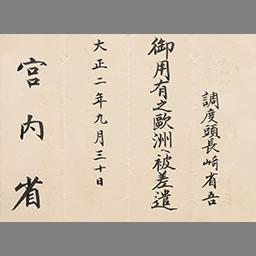 調度頭長崎省吾
御用有之歐洲へ被差遣
大正二年九月三十日
宮内省